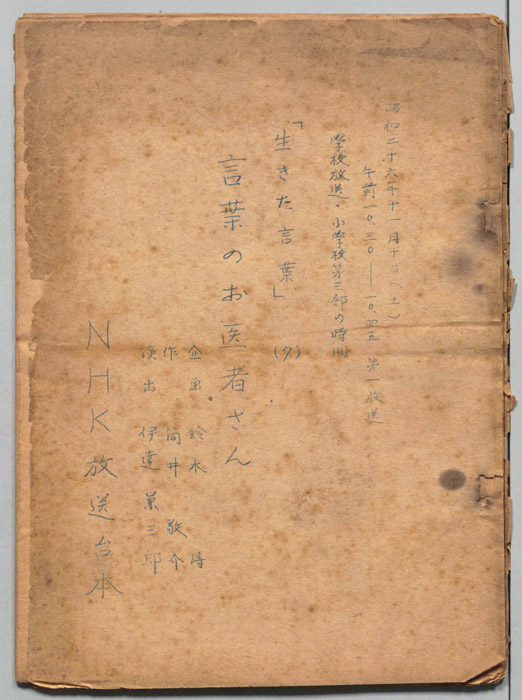 昭和二十六年十一月十日(土)
午前一〇.三〇——一〇.四五 第一放送
学校放送・小学校第三部の時間
「生きた言葉」(夕)
言葉のお医者さん
企画 鈴木 博
作 筒井 敬介
演出 伊達 兼三郎
NHK放送台本